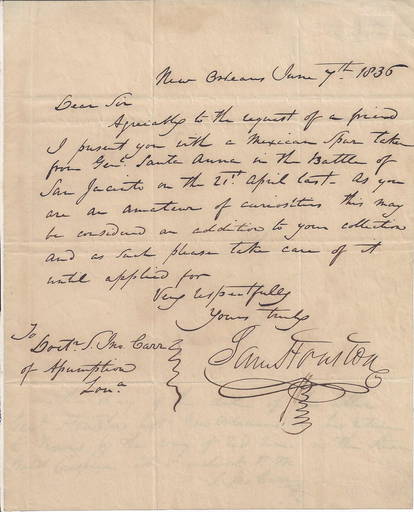 New Orleans June 7th. 1836
Dear Sir
Agreiably to the request of a friend
I present you with a Mexican Spur taken
from Genl. Santa Anna in the Battle of
San Jacinto on the 21st. April last - As you
are an amateur of curiosities this may
be considered an addition to your collection
and as such please take care of it
until applied for
Very respectfully
Yours truly
Sam Houston
To
Doctr. S. Jno. Carr
of Assumption
Loua.